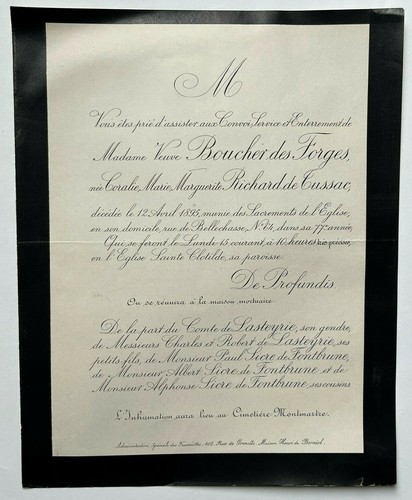 M
Vous êtes prié d'assister aux Convoi, Service et Enterrement de
Madame Veuve Boucher des Forges,
née Coralie, Marie, Marguerite, Richard de Tussac,
décédée le 12 Avril 1895, munie des Sacrements de l'Eglise,
en son domicile, rue de Bellechasse, N° 64, dans sa 77e année,
Qui se feront le Lundi 15 courant, à 10 heures très précises,
en l'Eglise Sainte Clotilde, sa paroisse.
De Profundis.
On se réunira à la maison mortuaire.
De la part du Comte de Lasteyrie, son gendre,
de Messieurs Charles et Robert de Lasteyrie, ses
petits-fils, de Monsieur Paul Sicre de Fontbrune,
de Monsieur Albert Sicre de Fontbrune et de
Monsieur Alphonse Sicre de Fontbrune, ses cousins.
L'Inhumation aura lieu au Cimetière Montmartre.
Administration Spéciale des Funérailles, Rue de Grenelle, Maison Henri de Borniol.